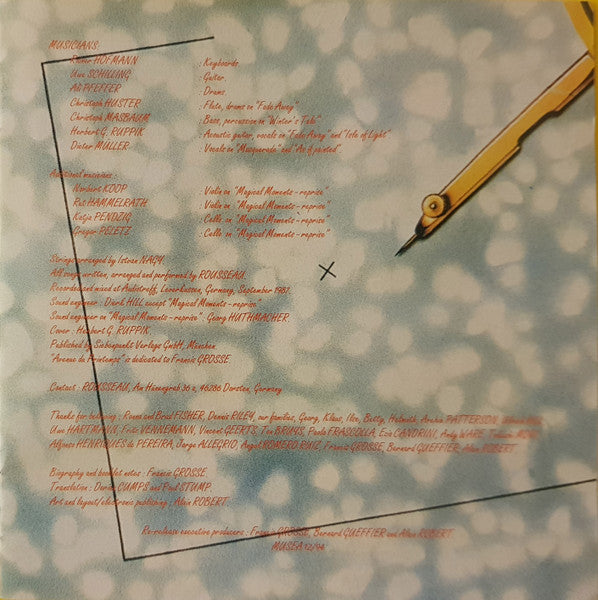 MUSICIANS:
Rainer HOFMANN : Keyboards.
Uwe SCHILLING : Guitar.
Ali PFEFFER : Drums
Christoph HUSTER : Flute, drums on "Fade Away"
Christoph MASBAUM : Bass, percussion on "Winter's Tale"
Herbert G. RUPPIK : Acoustic guitar, vocals on "Fade Away" and "Isle of Light"
Dieter MÜLLER : Vocals on "Masquerade" and "As if painted".
Additional musicians :
Norbert KOOP Violin on "Magical Moments - reprise"
Rob HAMMELRATH : Violin on "Magical Moments - reprise"
Katja PENDZIG : Cello on "Magical Moments - reprise"
Gregor PELETZ : Cello on "Magical Moments - reprise"
Strings arranged by Istvan NAGY.
All songs written, arranged and performed by ROUSSEAU.
Recorded and mixed at Audiotreff, Leverkusen, Germany, September 1987.
Sound engineer : Dierk HILL except "Magical Moments - reprise"
Sound engineer on "Magical Moments - reprise" : Georg HUTHMACHER.
Cover : Herbert G. RUPPIK.
Published by Siebenpunkt Verlags GmbH, München.
"Avenue de Printemps" is dedicated to Francis GROSSE
Contact : ROUSSEAU, Am Hünengrab 36 a, 46286 Dorsten, Germany
Thanks for helping : and Brad FISHER, Dennis RILEY, our families, Georg, Klaus, Ilse, Betty, Helmuth, Archie PATTERSON,
Uwe HARTMANN, Fritz VENNEMANN, Vincent GEERTS, Ton Paolo FRASCOLLA, Eric CANDRINI, Andy WARE,
Alfonso HENRIQUES de PEREIRA, Jorge ALLEGRIO, Angel ROMERO RUIZ, Francis GROSSE, Bernard GUEFFIER, Alain ROBERT.
Biography and booklet notes : Francis GROSSE.
Translation : David CUMPS and Paul STUMP.
Art and layout/electronic publishing : Alain ROBERT.
Re-release executive producers : Francis GROSSE, Bernard GUEFFIER and Alain ROBERT.
MUSEA 12/94